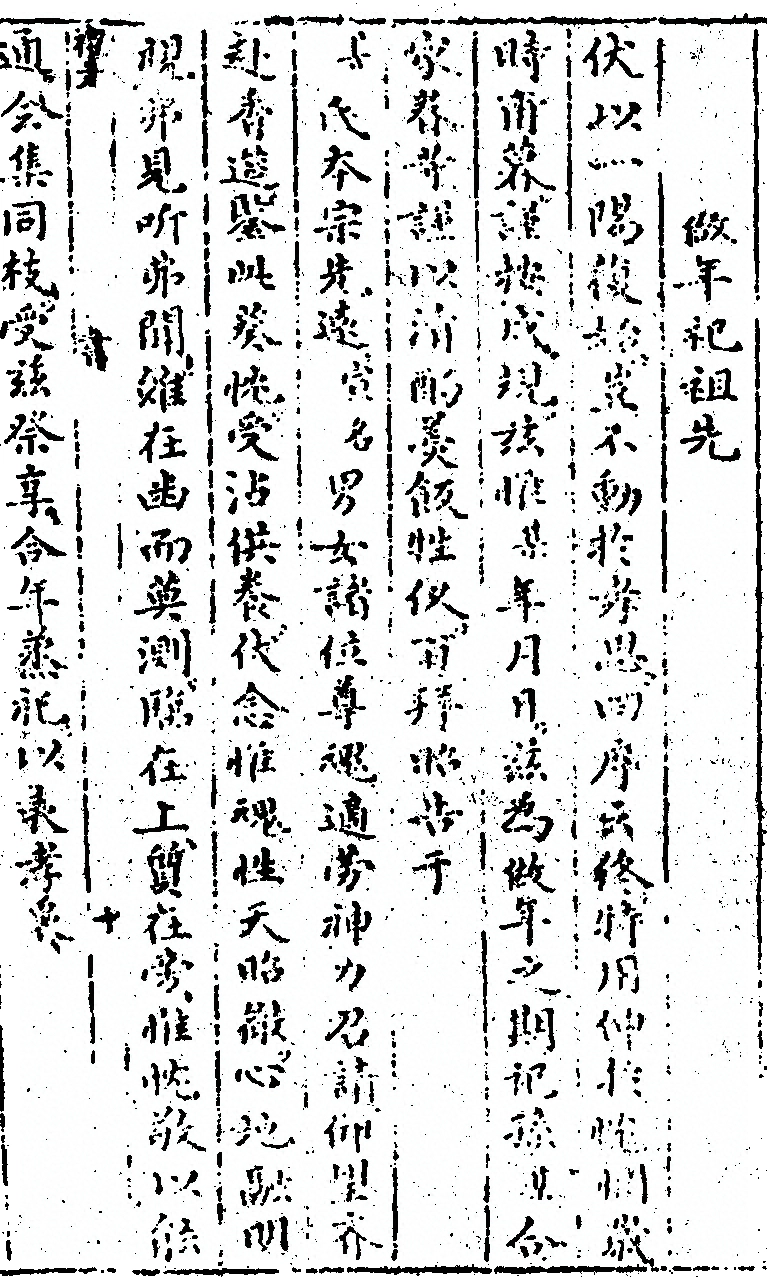 做年祀祖先
伏以一陽復始豈不動於孝思四序云終特用伸於悃歲
時甫暮謹按成規茲惟某年月日茲為做年之期祀孫某合
家眷等謹以清酌羹飯牲仪百拜昭告于
某氏本宗先遠賓名男女諸位尊魂適勞神力召請仰望齊
赴香筵鑒此葵忱受沾供養伏念惟魂性天昭徹心地融明
視弗見听弗聞雖在幽而莫測臨在上質在旁惟忱敬以能
通
祖考
会集同枝受茲祭享今年蒸祀以表孝衷
十